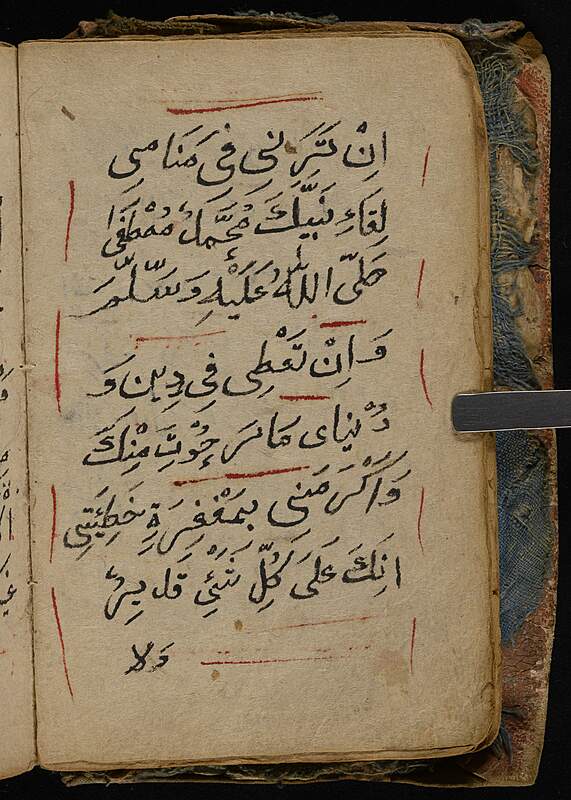 اِنْ تَرَنِى فِى مَنَامِى
لِقَاءِ نَبِيِّكَ مُحَمَّدٌ مُصْطَفَى
صَلىَّ اللهُ عَلَيْهِ وَسَلَّمَ
وَاِنْ تَعْطِى فِى دِينِ وَ
دُنْيَاى مَا رَجَوْتِ مِنْكَ
وَاَكْرَمَنِى بِمَغْفِرَةِ خَطِيئَتِى
اِنَكَ عَلَى كُلِّ شَئْيٍ قَدِيرٌ
وَلا